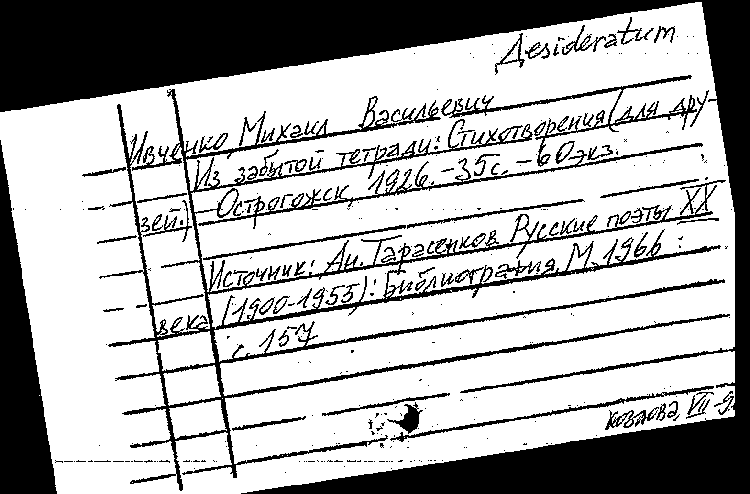 Desideratum
Ивченко, Михаил Васильевич
Из забытой тетради: Стихотворения (для дру-
зей.) – Острогожск, 1926. – 35 с. – 60 экз.
Источник: Ан. Тарасенков Русские поэты XX
века (1900-1955): Библиография. М. 1966 :
с. 157
Козлова, VII - 9